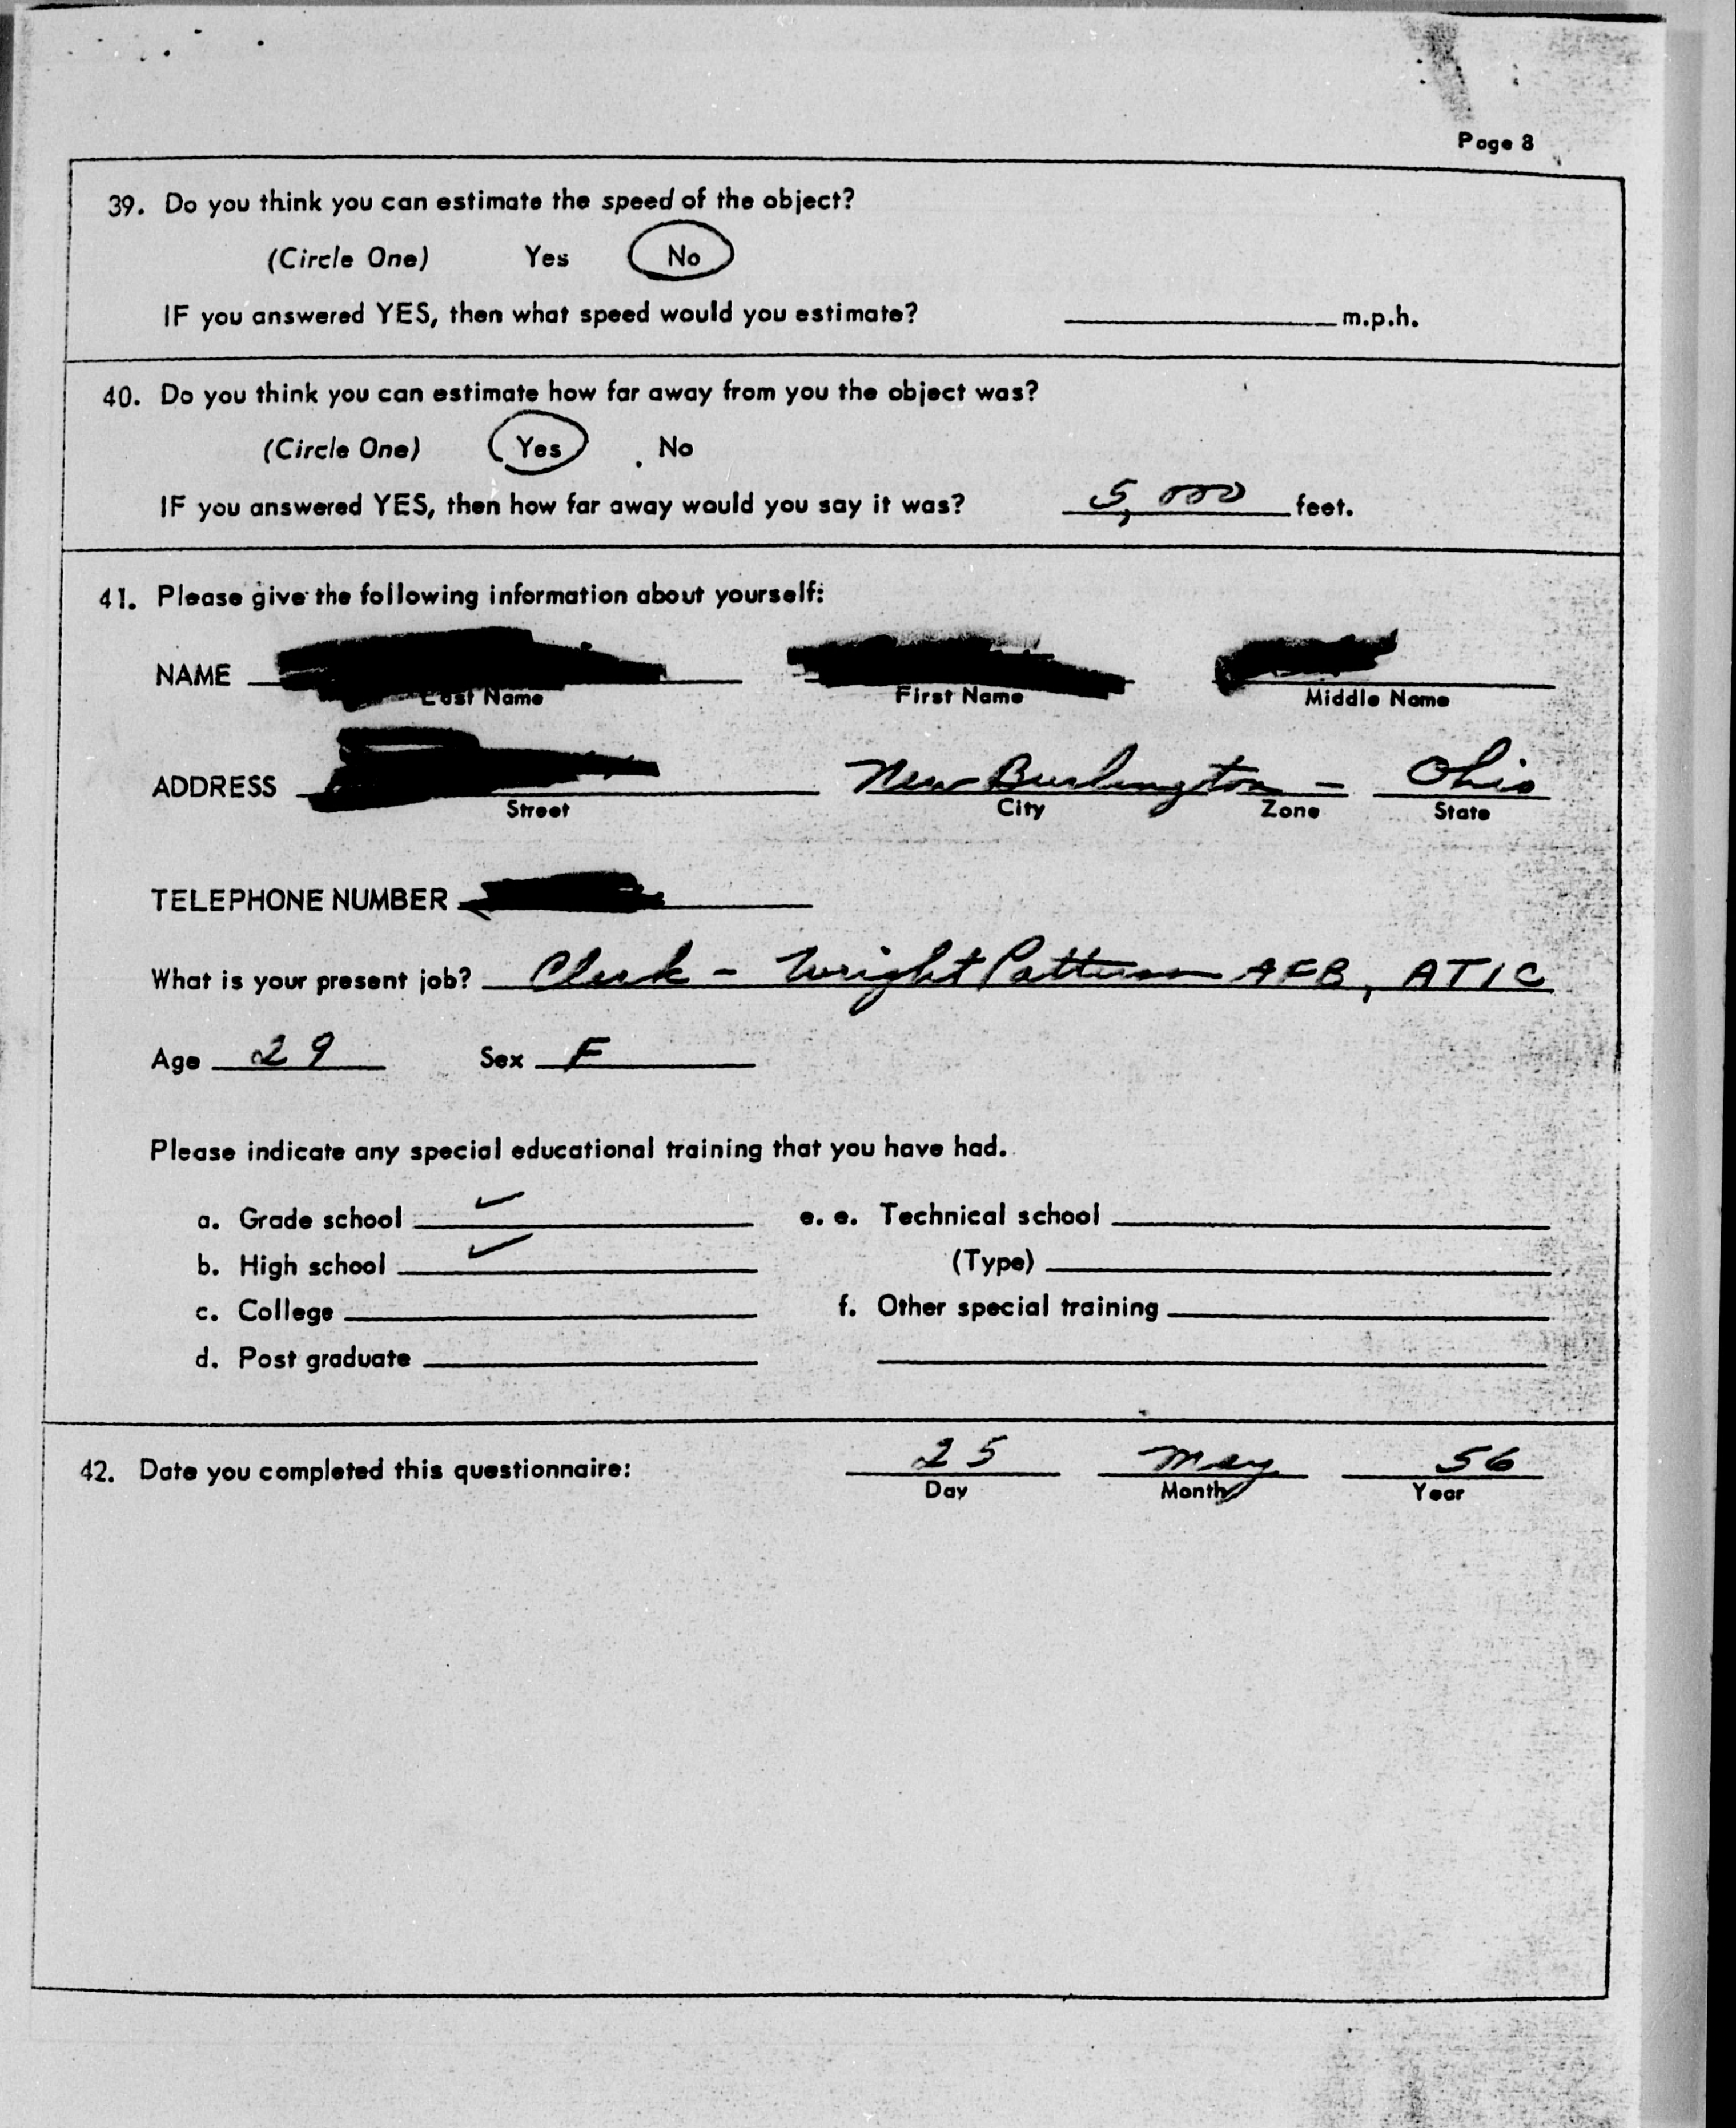 Page 8
39. Do you think you can estimate the speed of the object?
(Circle One) Yes No
IF you answered YES, then what speed would you estimate? m.p.h.
40. Do you think you can estimate how far away from you the object was?
(Circle One) Yes No
IF you answered YES, then how far away would you say it was? 5,000 feet.
41. Please give the following information about yourself:
NAME
Last Name First Name Middle Name
ADDRESS New Burlington - Ohio
Street City Zone State
TELEPHONE NUMBER
What is your present job? Clerk - Wright Patterson AFB, ATIC
Age 29 Sex F
Please indicate any special educational training that you have had.
a. Grade school ✓ e. e. Technical school
b. High school ✓ (Type)
c. College f. Other special training
d. Post graduate
42. Date you completed this questionnaire: 25 May 56
Day Month Year